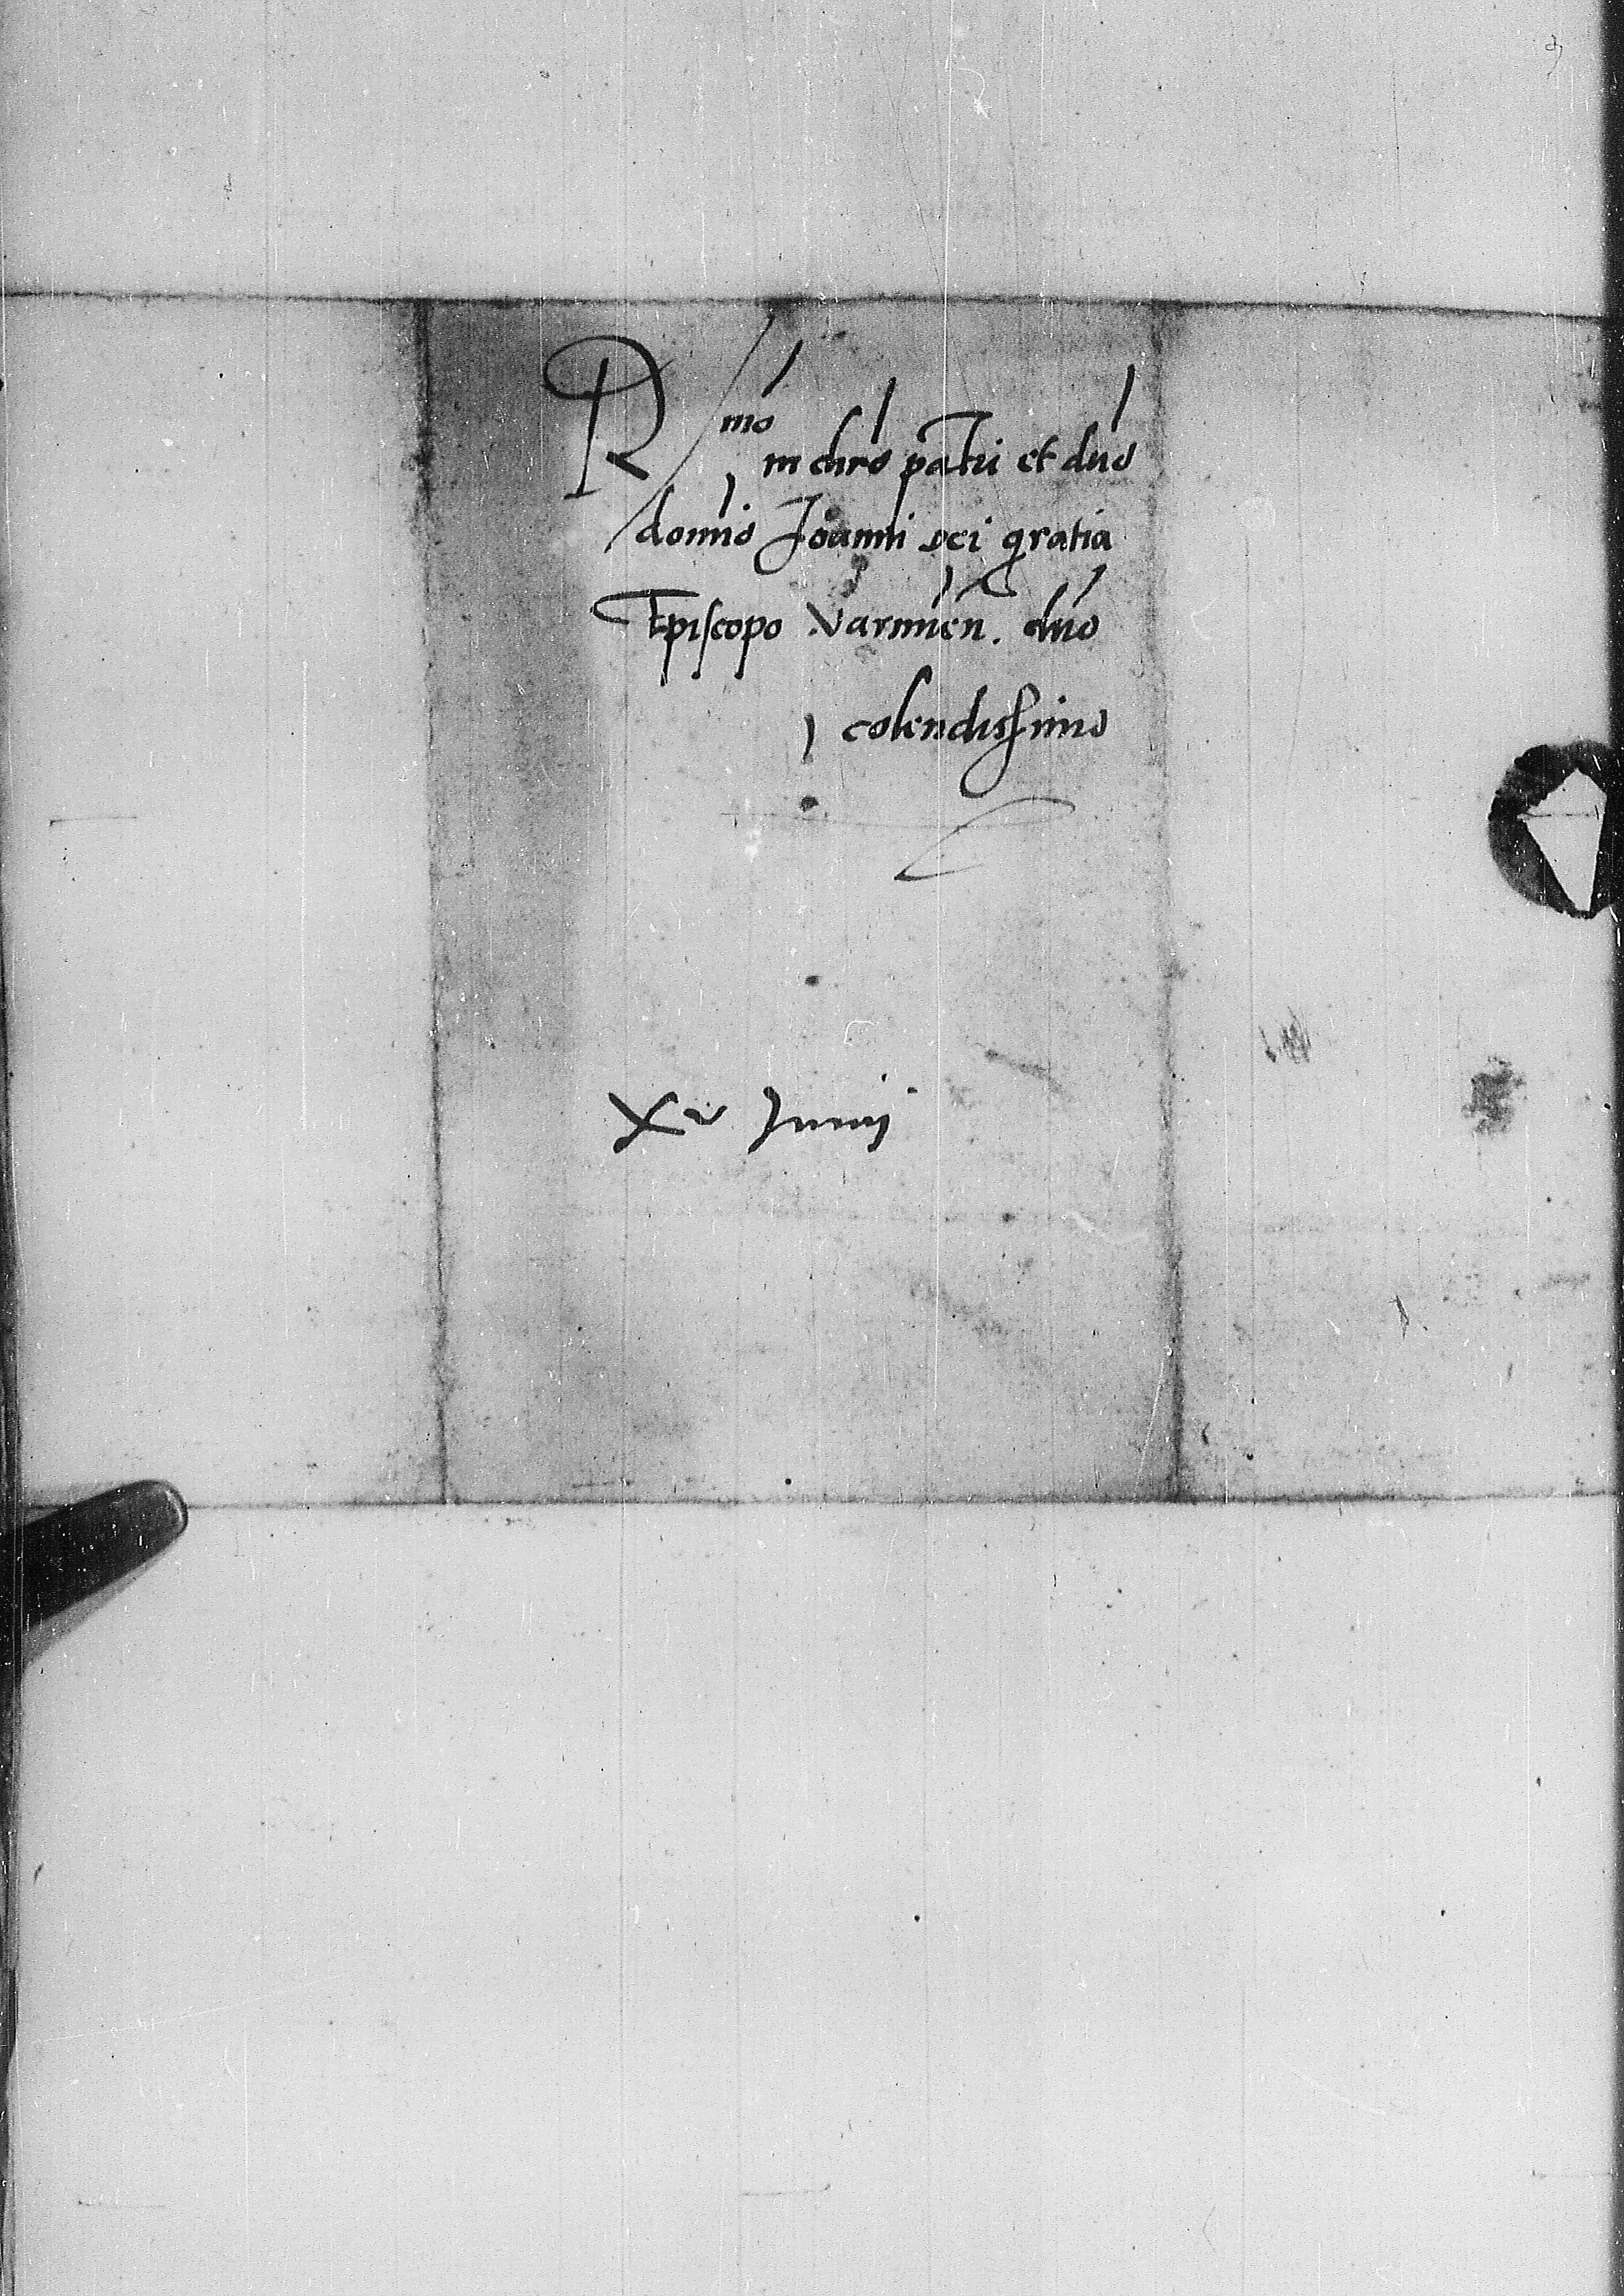 Rmo in chro patri et dno
domino Joanni dei gratia
Episcopo Varmien. dno
colendissimo
Xv Junii